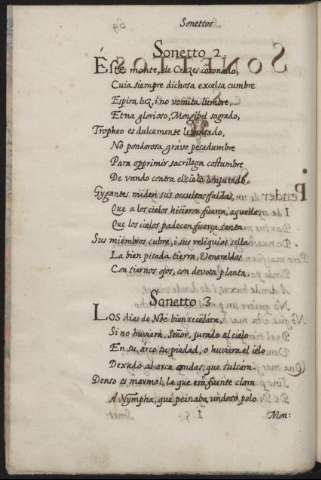 Sonettos
Sonetto 2
Este monte, de Cruzes coronado,
Cuia siempre dichosa excelsa cumbre
Espira luz, i no vomita lumbre,
Etna glorioso, Mongibel sagrado,
Tropheo es dulcemente levantado,
No ponderosa, graue pesadumbre
Para opprimir sacrilega costumbre
De vando contra el cielo conjurado.
Gygantes miden sus occultas faldas,
Que a los cielos hicieron fuerça, aquella
Que los cielos padecen fuerça santa
Sus miembros cubre, i sus reliquias sella
La bien pisada tierra, Veneraldas
Con tiernos ojos, con devota planta.
Sonetto 3
Los dias de Noe bien recelara,
Si no huviera, Señor, jurado el cielo
En su arco tu piedad, o huviera el ielo
Dexado al arca ondas, que sulcara
Denso es marmol, la que era fuente clara
A Nympha, que peinaba undoso pelo
Mon: